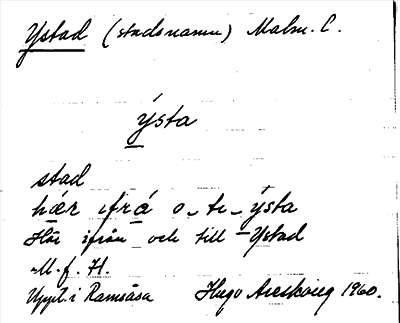 Ystad (stadsnamn) Malm. C.
ýsta
stad
hær ifrá o_te_ýsta
Här ifrån och till Ystad
M.f. H.
Uppt. i Ramsåsa Hugo Areskoug 1960.